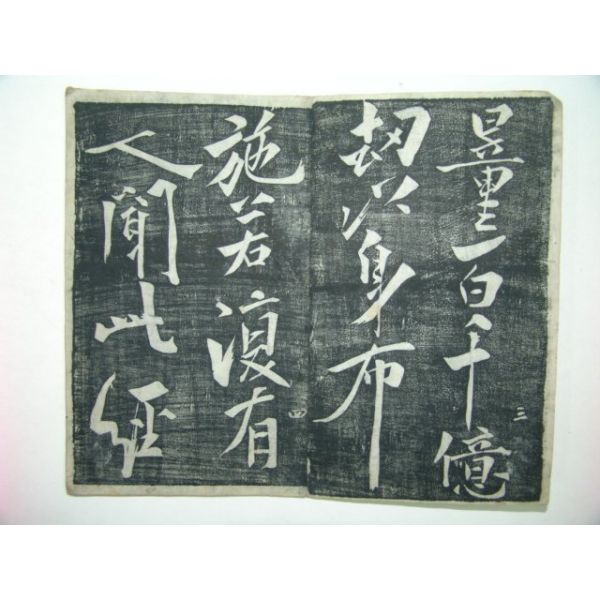 量百千億
三
劫以身布
施若復有
四
人聞此経